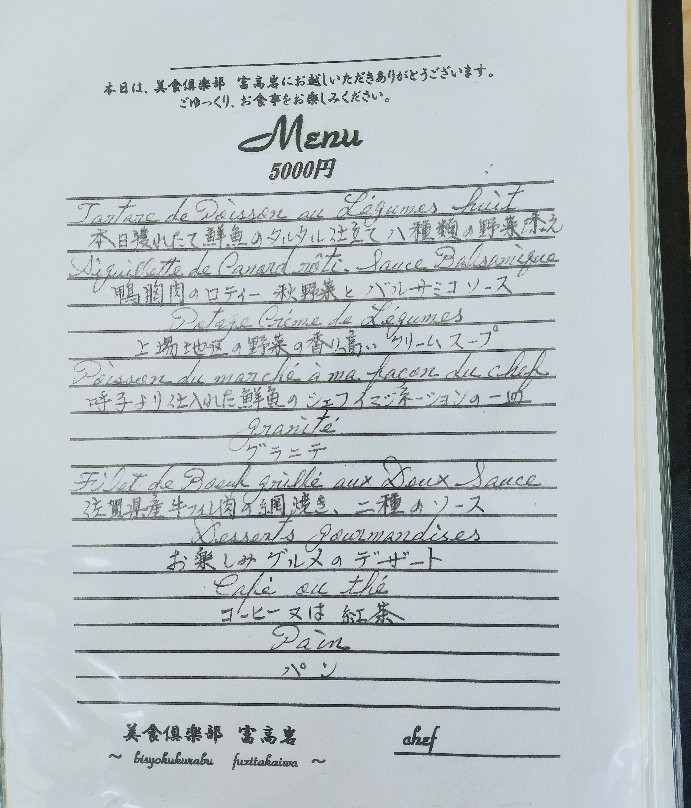 本日は、美食倶楽部 富高岩にお越しいただきありがとうございます。
ごゆっくり、お食事をお楽しみください。
Menu
5000円
Tartare de Poisson au Légumes huit
本日獲れたて鮮魚のタルタル仕立て 八種類の野菜添え
Aiguillette de Canard rôti. Sauce Balsamique
鴨胸肉のロティー 秋野菜と バルサミコソース
Potage Crème de Légumes
上場地区の野菜の香り高い クリームスープ
Poisson du marché à ma façon du chef
呼子より仕入れた鮮魚のシェフイマジネーションの一皿
granité
グラニテ
Filet de Boeuf grillé aux Doux Sauce
佐賀県産牛フィレ肉の網焼き、二種のソース
Desserts gourmandises
お楽しみグルメのデザート
Café ou thé
コーヒー又は紅茶
Pain
パン
美食倶楽部 富高岩
chef
～ bisyokukurabu fuzitakaiwa ～